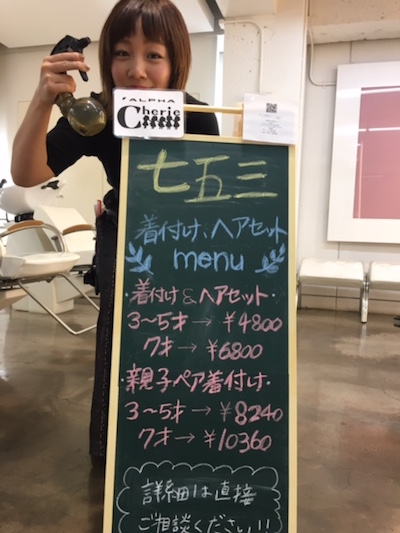 ALPHA
Cherie
七五三
着付け、ヘアセット
menu
・着付け&ヘアセット・
3〜5才→¥4800
7才→¥6800
・親子ペア着付け・
3〜5才→¥8240
7才→¥10360
詳細は直接
ご相談ください!!